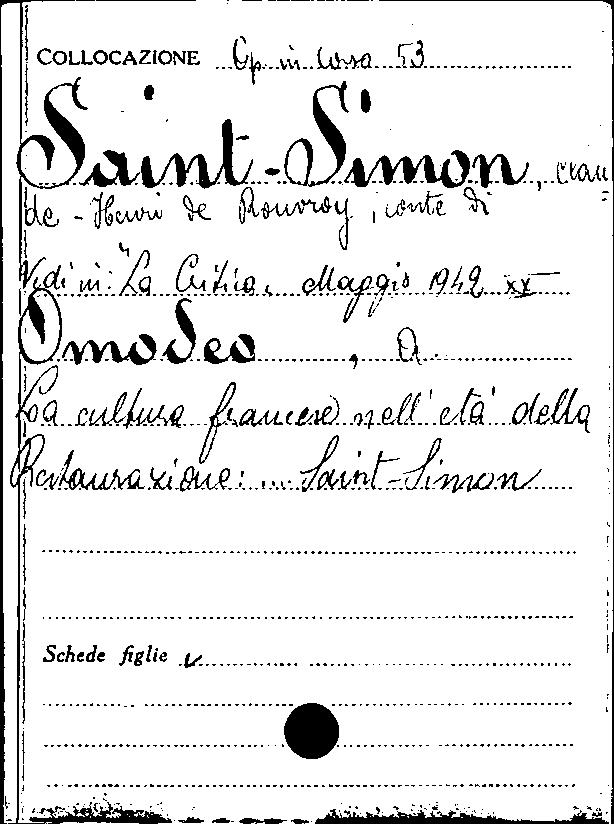 COLLOCAZIONE Op in corso 53
Saint-Simon, Clau
de-Henri de Rouvroy, conte di
Vedi in: "La Critica. Maggio 1942 XX
Omodeo, A.
La cultura francese nell'età della
Restaurazione: ... Saint-Simon
Schede figlie